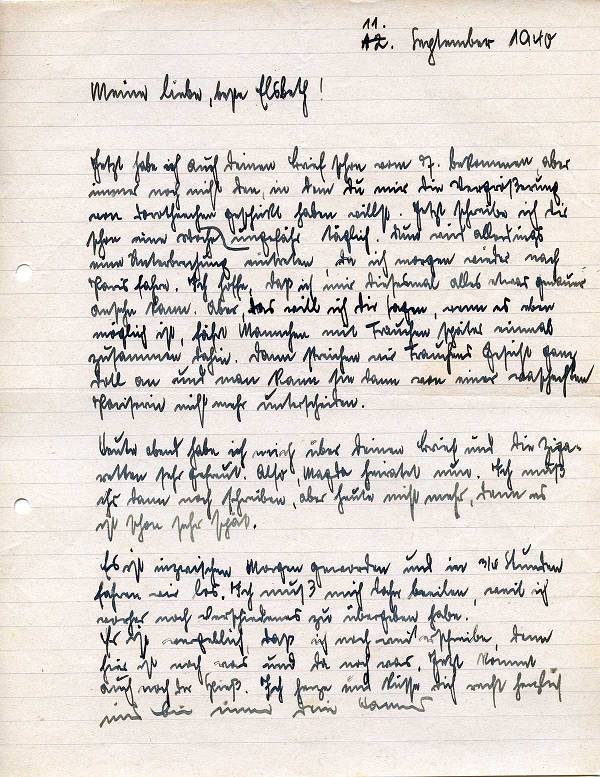 11.
12. September 1940
Meine liebe, beste Elsbeth!
Jetzt habe ich auch Deinen Brief schon vom 7. bekommen aber
immer noch nicht den, in dem Du mir die Vergrößerung
von Dorothinchen geschickt haben willst. Jetzt schreibe ich Dir
schon eine Woche ungefähr täglich. Nun wird allerdings
eine Unterbrechung eintreten, da ich morgen wieder nach
Paris fahre. Ich hoffe, daß ich mir diesesmal alles etwas genauer
ansehen kann. Aber, das will ich Dir sagen, wenn es eben
möglich ist, fährt Männchen mit Frauchen später einmal
zusammen dahin. Dann streichen wir Frauchens Gesicht ganz
doll an und man kann sie dann von einer waschechten
Pariserin nicht mehr unterscheiden.
Heute abend habe ich mich über Deinen Brief und die Ziga-
retten sehr gefreut. Also, Magda heiratet nun. Ich muß
ihr dann noch schreiben, aber heute nicht mehr, denn es
ist schon sehr spät.
Es ist inzwischen Morgen geworden und in 3/4 Stunden
fahren wir los. Ich muß mich sehr beeilen, weil ich
vorher noch Verschiedenes zu übergeben habe.
Es ist vergeblich, daß ich noch weiterschreibe, denn
hier ist noch was und da noch was. Jetzt kommt
auch noch der Spieß. Ich herze und küsse Dich recht herzlich
und bin immer Dein